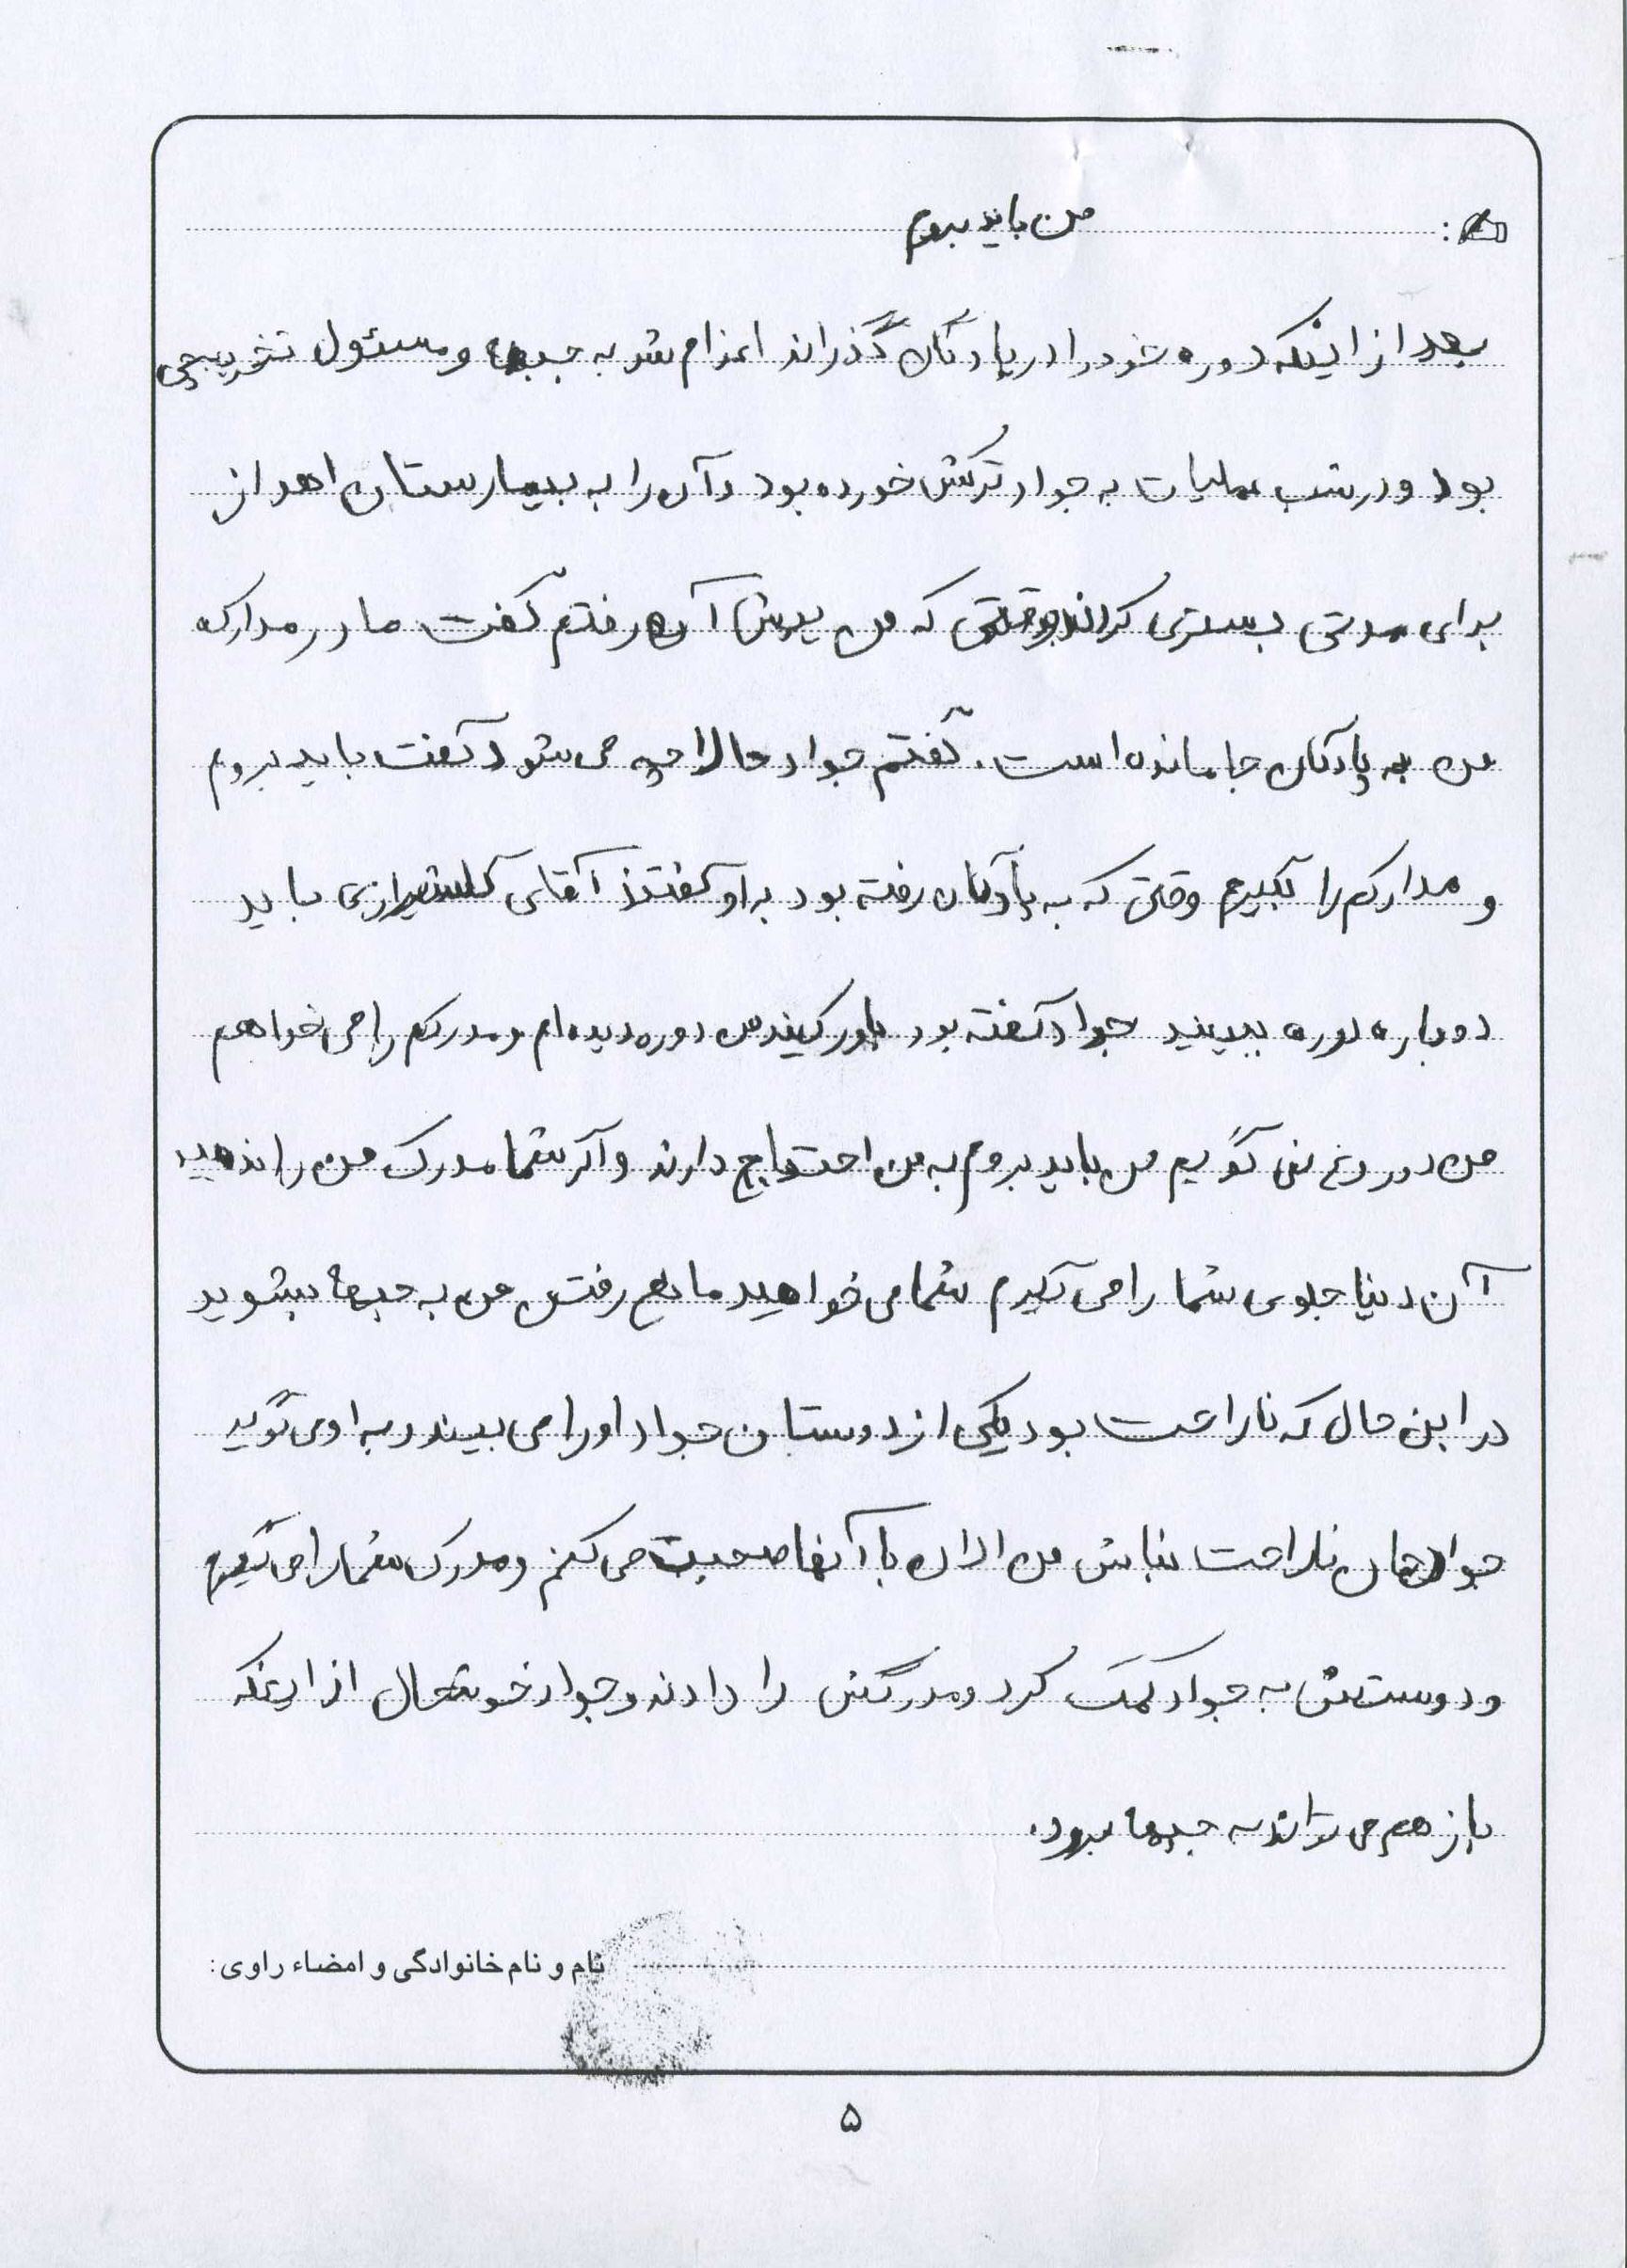 من باید بروم
بعد از اینکه دوره خود را در پادگان گذراند اعزام شد به جبهه و مسئول تخریبچی
بود و در شب عملیات به جواد ترکش خورده بود و آن را به بیمارستان اهواز
برای مدتی بستری کردند وقتی که من پیش آن رفتم گفت مادر مدارک
من به پادگان جا مانده است. گفتم جواد حالا چه می شود گفت باید بروم
و مدارکم را بگیرم وقتی که به پادگان رفته بود به او گفتند آقای گلشیرازی باید
دوباره دوره ببینید جواد گفته بود باور کنید من دوره دیده ام و مدرکم را می خواهم
من دروغ نمی گویم من باید بروم به من احتیاج دارند و اگر شما مدرک من را ندهید
آن دنیا جلوی شما را می گیرم شما می خواهید مانع رفتن من به جبهه بشوید
در این حال که ناراحت بود یکی از دوستان جواد او را می بیند و به او می گوید
جواد جان ناراحت نباش من الان با آنها صحبت می کنم و مدرک شما را می گیرم
و دوستش به جواد کمک کرد و مدرکش را دادند و جواد خوشحال از اینکه
باز هم می تواند به جبهه برود.
نام و نام خانوادگی و امضاء راوی:
۵